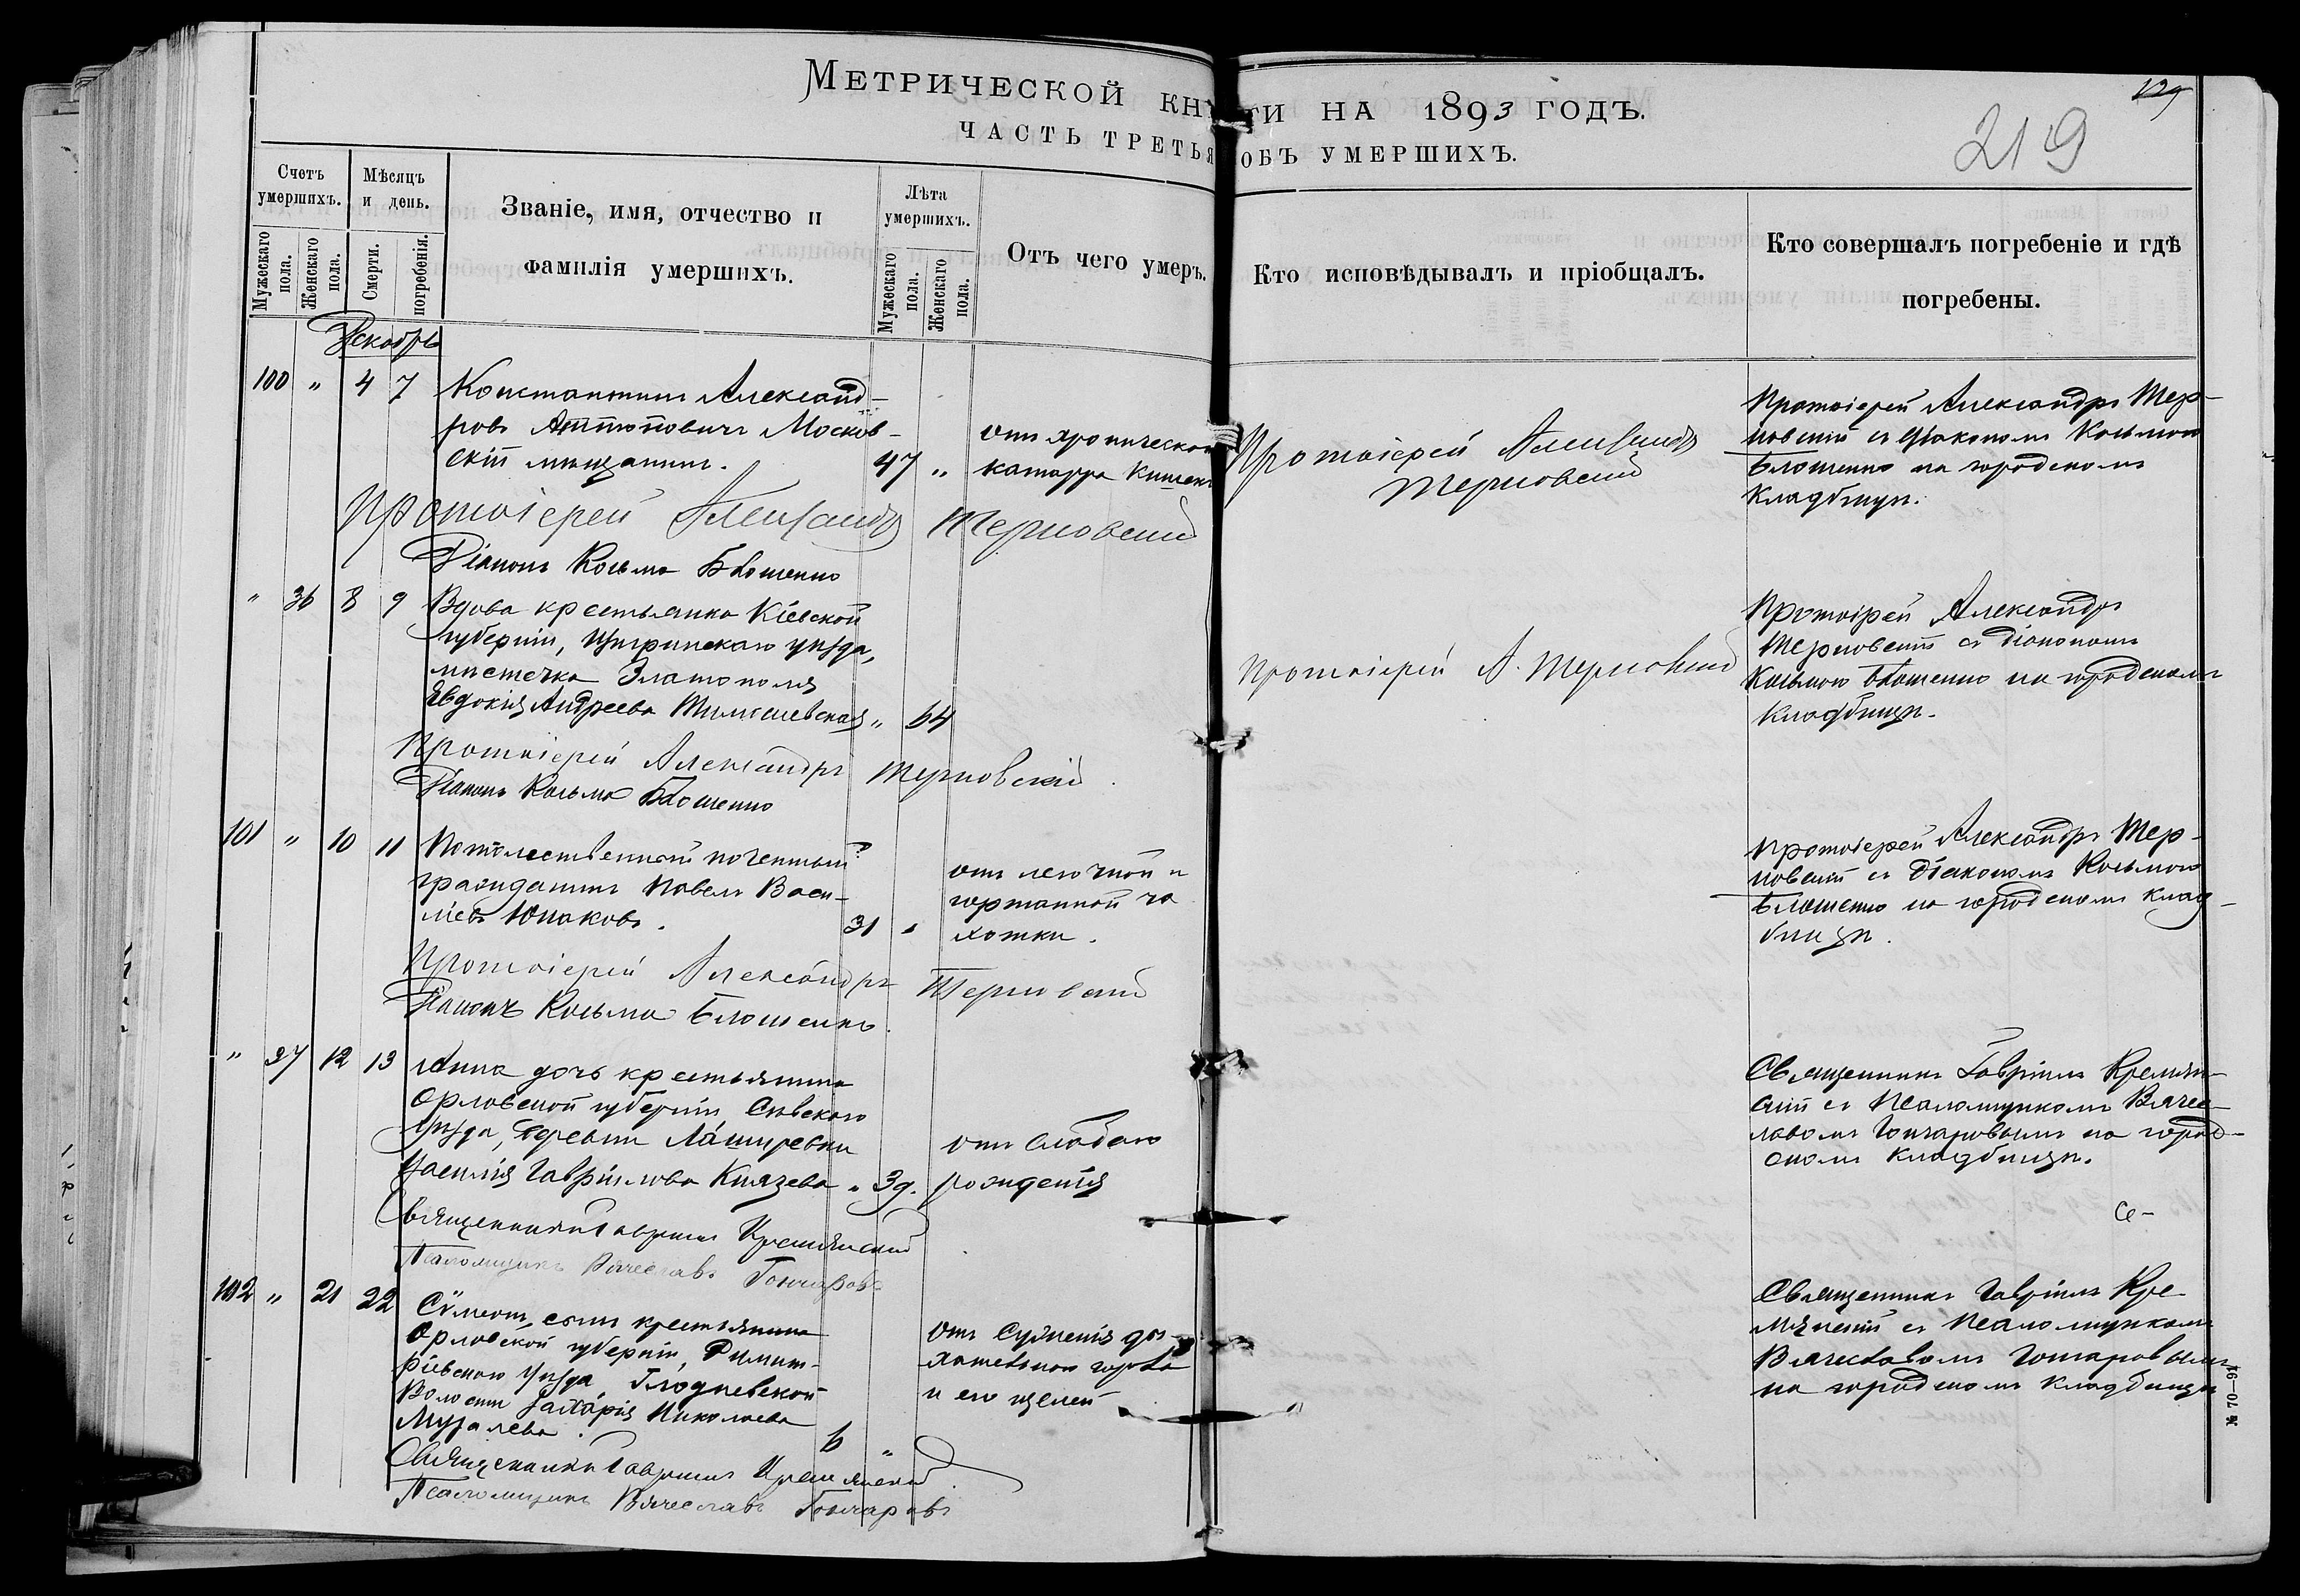 Метрической книги на 1893 годъ.
часть третья объ умершихъ.
129
219
Счетъ умершихъ.
Мѣсяцъ и день.
Званіе, имя, отчество и фамилія умершихъ.
Лѣта умершихъ.
Отъ чего умеръ.
Кто исповѣдывалъ и пріобщалъ.
Кто совершалъ погребеніе и гдѣ погребены.
Мужескаго пола.
Женскаго пола.
Смерти.
погребенія.
Мужескаго пола.
Женскаго пола.
Декабрь
100 " 4 7 Константинъ Александ-
ровъ Московскій мѣщанинъ.
47 "
отъ хроническаго
катарра кишекъ
Протоіерей Александръ
Терновскій
Протоіерей Александръ Тер-
новскій съ діакономъ Козьмою
Блошенко на городскомъ
кладбищѣ.
Протоіерей Александръ Терновскій
Діаконъ Козьма Блошенко
" 36 8 9 Вдова крестьянка Кіевской
губерніи, Чигринскаго уѣзда,
мѣстечка Златополя
Евдокія Андреева " 64
Протоіерей А. Терновскій
Протоіерей Александръ
Терновскій съ діакономъ
Козьмою Блошенко на городскомъ
кладбищѣ.
Протоіерей Александръ Терновскій.
Діаконъ Козьма Блошенко
101 " 10 11 Потомственный почетный
гражданинъ Павелъ Васи-
льевъ Юшковъ.
31 "
отъ легочной и
гортанной ча
хотки.
Протоіерей Александръ Тер-
новскій съ Діакономъ Козьмою
Блошенко на городскомъ клад-
бищѣ.
Протоіерей Александръ Терновскій
Діаконъ Козьма Блошенко.
" 37 12 13 Анна дочь крестьянина
Орловской губерніи Сѣвскаго
Уѣзда, деревни
Василія Гавріилова Князева " 3 д.
отъ слабаго
рожденія
Священникъ Гавріилъ Кремян-
скій съ Псаломщикомъ Вячес-
лавомъ Гончаровымъ на город-
скомъ кладбищѣ.
Священникъ Гавріилъ Кремянскій
Псаломщикъ Вячеславъ Гончаровъ
102 " 21 22 Сѵмеонъ, сынъ крестьянина
Орловской губерніи, Димит-
ріевскаго Уѣзда
Волости Захарія Николаева
Муралева.
6 "
отъ Суженія ды-
хательнаго горла
и его щелей
Священникъ Гавріилъ Кре-
мянскій съ Псаломщикомъ
Вячеславомъ Гончаровымъ
на городскомъ кладбищѣ
Священникъ Гавріилъ Кремянскій.
Псаломщикъ Вячеславъ Гончаровъ
№ 70—91